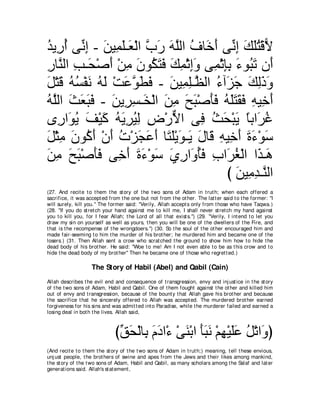 لأَقْتُلَكَ إِنِّى أَخَافُ اللَّهَ رَبَّ الْعَـلَمِينَ - إِنِّى أُرِيدُ
أَن تَبُوءَ بِإِثْمِى وَإِثْمِكَ فَتَكُونَ مِنْ أَصْحَـبِ النَّارِ
وَذَلِكَ جَزَآءُ الظَّـلِمِينَ - فَطَوَّعَتْ لَهُ نَفْسُهُ قَتْلَ
أَخِيهِ فَقَتَلَهُ فَأَصْبَحَ مِنَ الْخَـسِرِينَ - فَبَعَثَ اللَّهُ
غُرَاباً يَبْحَثُ فِى الأَرْضِ لِيُرِيَهُ كَيْفَ يُوَارِى
سَوْءَةَ أَخِيهِ قَالَ يَـوَيْلَتَا أَعَجَزْتُ أَنْ أَكُونَ مِثْلَ
هَـذَا الْغُرَابِ فَأُوَارِيَ سَوْءَةَ أَخِى فَأَصْبَحَ مِنَ
النَّـدِمِينَ )
(27. And recite to them the story of the two sons of Adam in truth; when each offered a
sacrifice, it was accepted from the one but not from the other. The latter said to the former: "I
will surely, kill you." The former said: "Verily, Allah accepts only from those who have Taqwa.)
(28. "If you do stretch your hand against me to kill me, I shall never stretch my hand against
you to kill you, for I fear Allah; the Lord of all that exists.") (29. "Verily, I intend to let you
draw my sin on yourself as well as yours, then you will be one of the dwellers of the Fire, and
that is the recompense of the wrongdoers.") (30. So the soul of the other encouraged him and
made fair-seeming to him the murder of his brother; he murdered him and became one of the
losers.) (31. Then Allah sent a crow who scratched the ground to show him how to hide the
dead body of his brother. He said: "Woe to me! Am I not even able to be as this crow and to
hide the dead body of my brother" Then he became one of those who regretted.)
The Story of Habil (Abel) and Qabil (Cain)
Allah describes the evil end and consequence of transgression, envy and injustice in the story
of the two sons of Adam, Habil and Qabil. One of them fought against the other and killed him
out of envy and transgression, because of the bounty that Allah gave his brother and because
the sacrifice that he sincerely offered to Allah was accepted. The murdered brother earned
forgiveness for his sins and was admitted into Paradise, while the murderer failed and earned a
losing deal in both the lives. Allah said,
(وَاتْلُ عَلَيْهِمْ نَبَأَ ابْنَىْ ءَادَمَ بِالْحَقِّ)
(And recite to them the story of the two sons of Adam in truth;) meaning, tell these envious,
unjust people, the brothers of swine and apes from the Jews and their likes among mankind,
the story of the two sons of Adam, Habil and Qabil, as many scholars among the Salaf and later
generations said. Allah's statement,